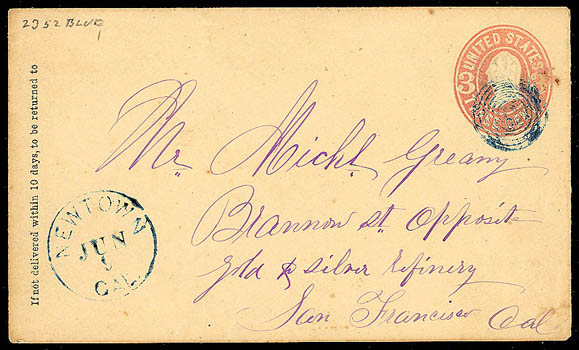 2952 BLUE
UNITED STATES
If not delivered within 10 days, to be returned to
Mr Michl Greany
Brannow st Opposit
gold & silver Refinery
San Francisco Cal
NEWTOWN
JUN
CAL.